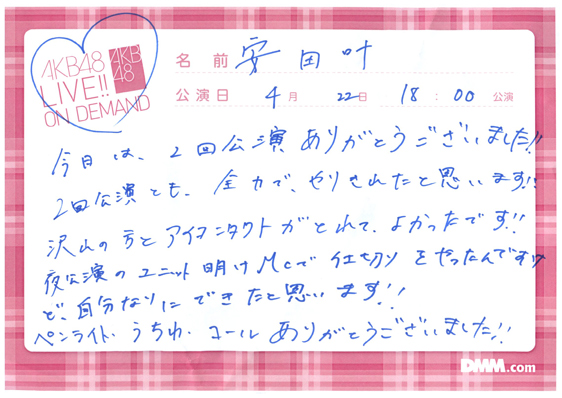 AKB48
LIVE!!
ON DEMAND
AKB
48
名前 安田叶
公演日 4月 22日 18:00 公演
今日は、2回公演ありがとうございました!!
2回公演とも、全力で、やりきれたと思います!!
沢山の方とアイコンタクトがとれて、よかったです!!
夜公演のユニット明けMcで仕切りをやったんですけ
ど、自分なりにできたと思います!!
ペンライト、うちわ、コールありがとうございました!!
DMM.com